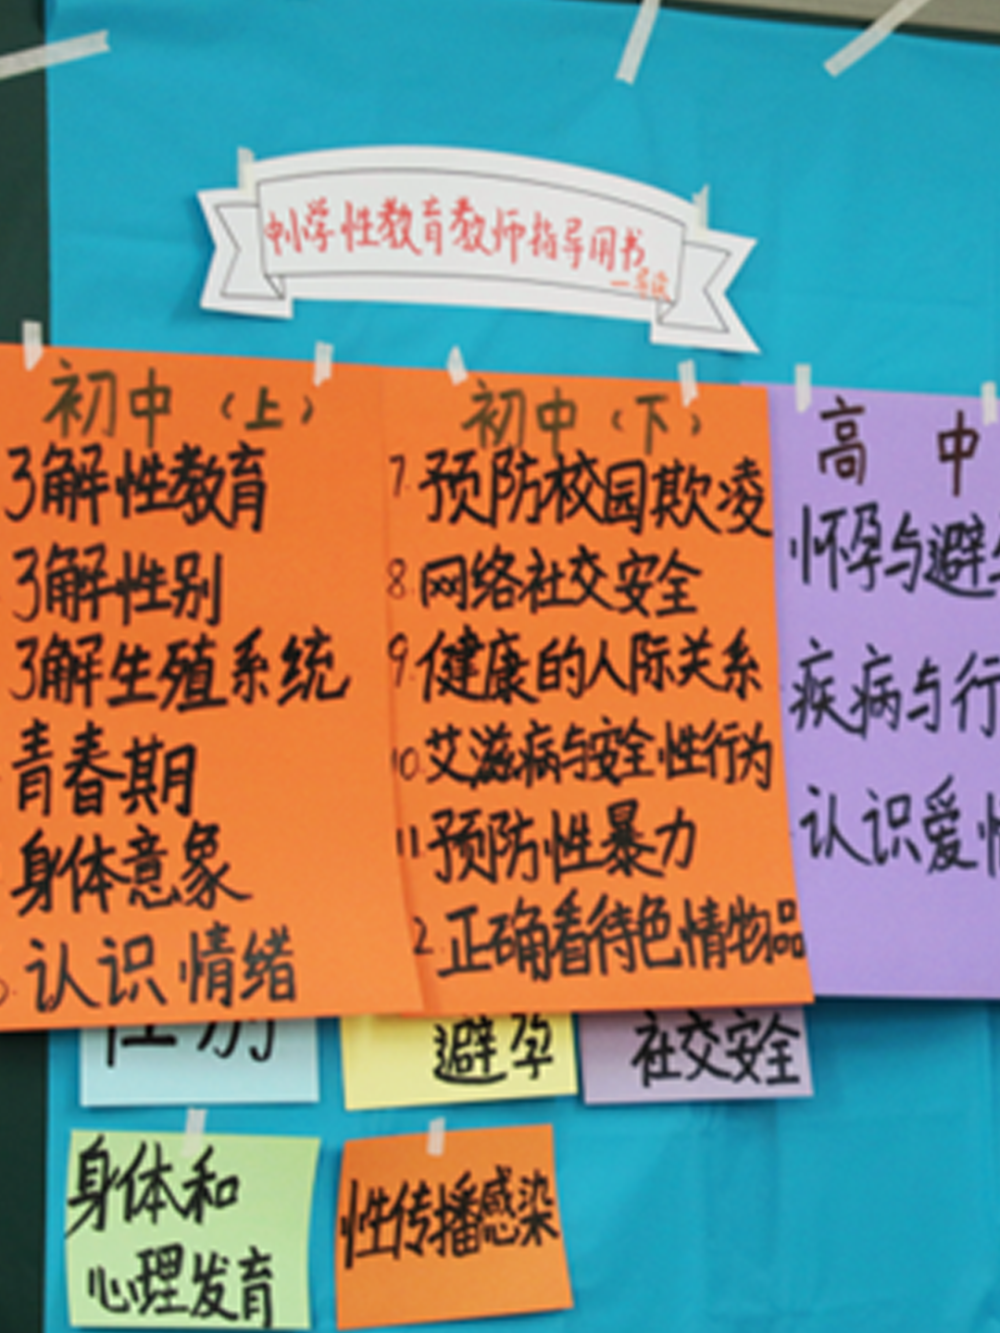 中小学性教育教师指导用书
初中（上）
了解性教育
了解性别
了解生殖系统
青春期
身体意象
认识情绪
初中（下）
7.预防校园欺凌
8.网络社交安全
9.健康的人际关系
10.艾滋病与安全性行为
11.预防性暴力
2.正确看待色情物品
高中
怀孕与避
疾病与行
认识爱
性别
避孕
社交安全
身体和
心理发育
性传播感染